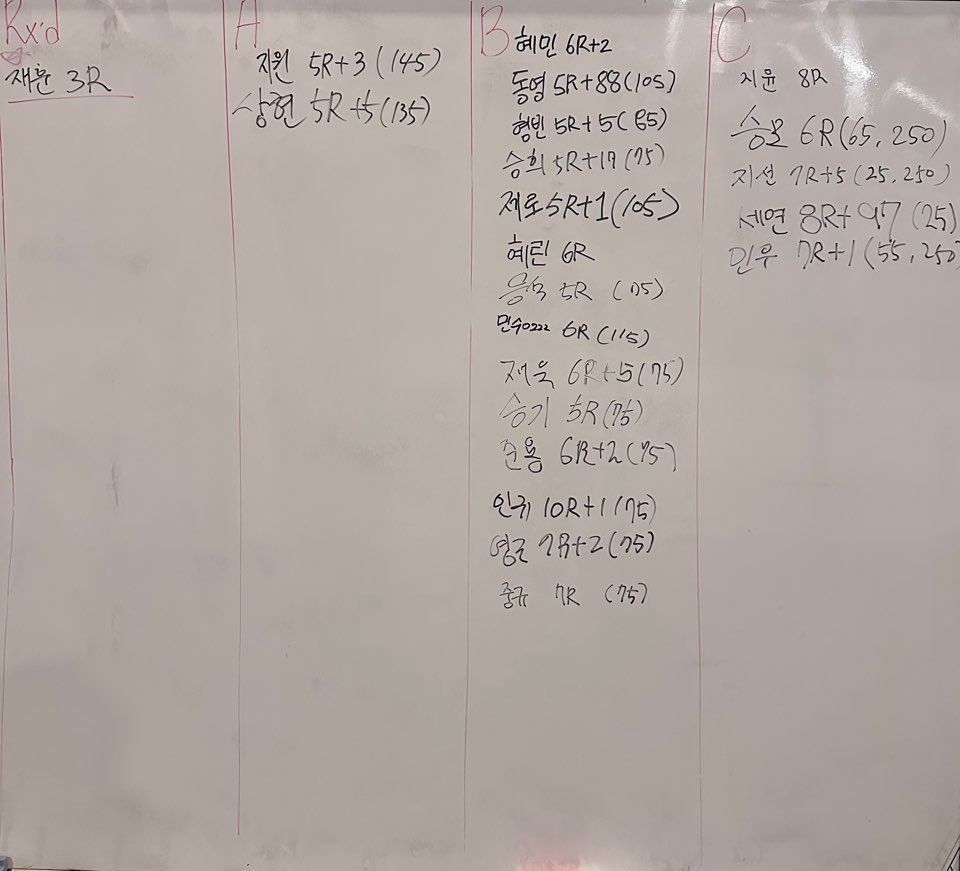 Rx'd
재훈 3R
A
지원 5R+3 (145)
상현 5R+5 (135)
B
혜민 6R+2
동영 5R+88 (105)
형빈 5R+5 (85)
승희 5R+17 (75)
제로 5R+1 (105)
혜린 6R
5R (75)
민수0222 6R (115)
재욱 6R+5 (75)
승기 5R (75)
준용 6R+2 (75)
인귀 10R+1 (75)
영근 7R+2 (75)
중규 7R (75)
C
지윤 8R
6R (65, 250)
지선 7R+5 (25, 250)
세연 8R+97 (25)
민우 7R+1 (55, 250)